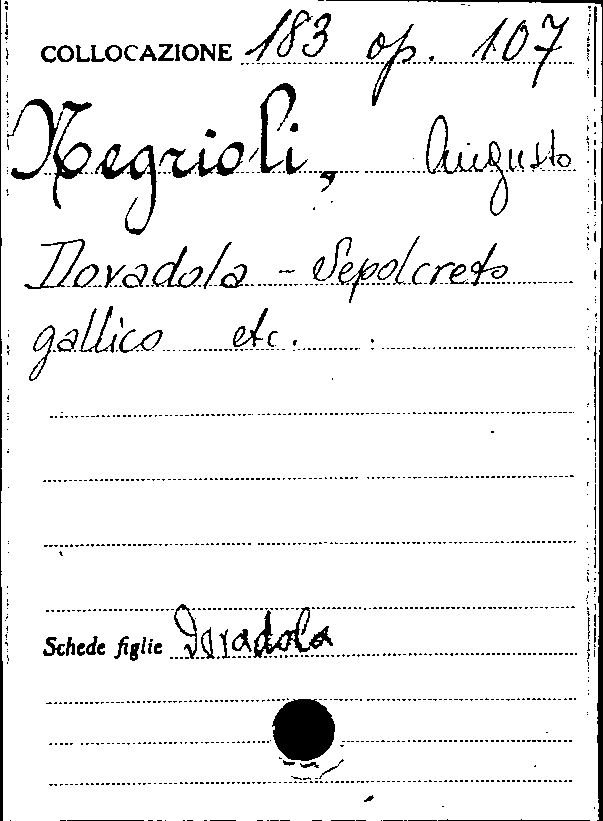 COLLOCAZIONE 183 op. 107
Negrioli, Augusto
Dovadola - Sepolcreto
gallico etc.
Schede figlie Dovadola